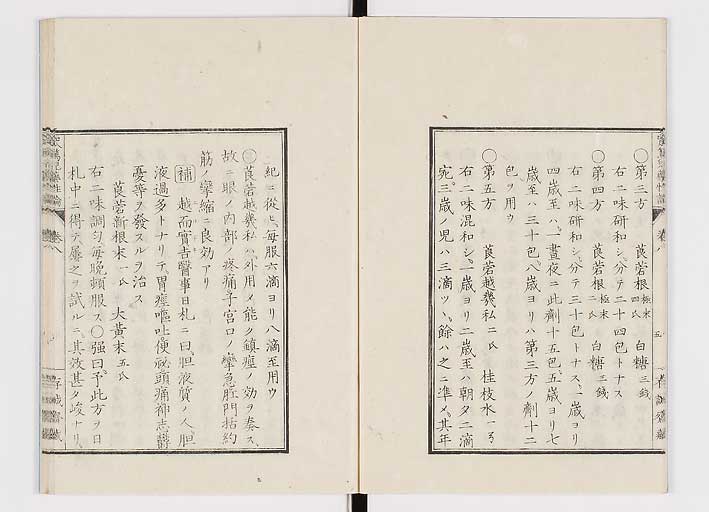 〇第三方　莨菪根極末四氏　白糖三錢
右二味研和シ、分テ二十四包トナス
〇第四方　莨菪根極末二氏　白糖二錢
右二味研和シ、分テ三十包トナス、一歳ヨリ
四歳至ハ、一晝夜ニ此劑十五包、五歳ヨリ七
歳至ハ三十包、八歳ヨリハ第三方ノ劑十二
包ヲ用ウ
〇第五方　莨菪越幾私二氏　桂枝水一
右二味混和シ、一歳ヨリ二歳至ハ朝夕二滴
宛、三歳ノ児ハ三滴ツヽ、餘ハ之ニ準メ、其年
紀ニ從ヒ、每服六滴ヨリ八滴至用ウ
〇莨菪越幾私ハ、外用メ能ク鎮痙ノ効ヲ奏ス、
故ニ眼ノ内部ノ疼痛子宮口ノ攣急肛門括約
筋ノ攣縮ニ良効アリ
補　越而實吉醫事日札ニ曰胆液質ノ人、胆
液過多トナリテ胃痙嘔吐便祕頭痛神志鬱
憂等ヲ發スルヲ治ス
莨菪新根末一氏　大黃末五氏
右二味調匀每晚頓服ス〇强曰予此方ヲ日
札中ニ得テ屢之ヲ試ルニ、其效甚タ峻ナリ、